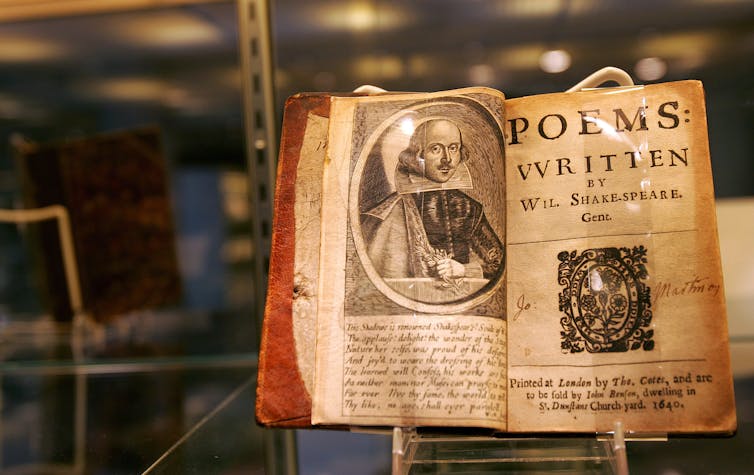 This Shadowe is renowned Shakespear's? Soule of th
The applause? delight? the wonder of the
Nature her selfe, was proud of his
And joy'd to weare the dressing of his
The learned will Confess, his works
As neither man, nor Muse, can prayse to
For ever live thy fame, the world to
Thy like, no age, shall ever
POEMS:
VVRITTEN
BY
WIL. SHAKE-SPEARE.
Gent.
Jo: Martin
Printed at London by Tho. Cotes, and are
to be sold by Iohn Benson, dwelling in
St. Dunstans Church-yard. 1640.